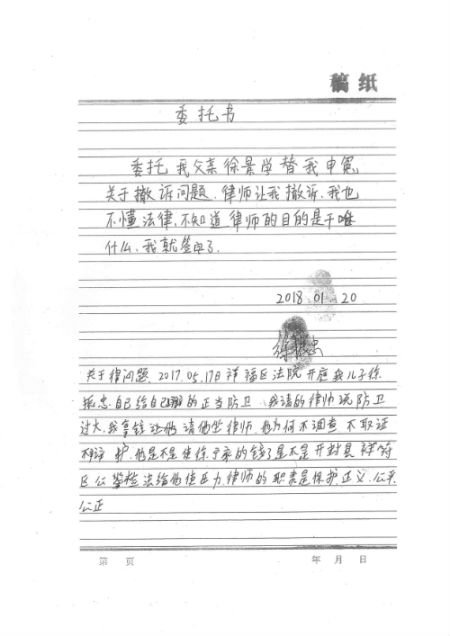 稿 纸
委托书
委托 我父亲徐景学替我申冤。
关于撤诉问题, 律师让我撤诉, 我也
不懂法律, 不知道律师的目的是干
什么, 我就签字了.
2018. 01. 20
徐 忠
关于律问题, 2017. 05. 17日祥 区法院开庭我儿子徐
忠自己给自己 的正当防卫 我请的律师说防卫
过大, 我拿钱 他 请他 律师 为何不调查 不取证
不 护, 他是不是 徐 的钱了是不是开封县祥符
区公 检法给他 压力律师的职责是保护正义, 公平
公正
第 页 年 月 日